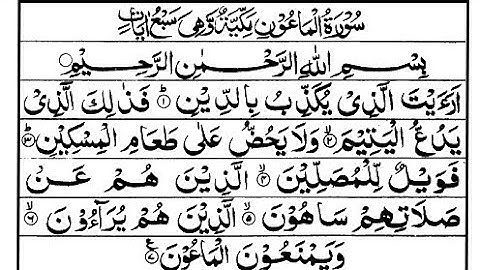 سُوْرَةُ الْمَاعُوْنِ مَكِّيَّةٌ وَّهِىَ سَبْعُ اٰيَاتٍ
بِسْمِ اللّٰهِ الرَّحْمٰنِ الرَّحِيْمِ
اَرَءَيْتَ الَّذِىْ يُكَذِّبُ بِالدِّيْنِ ۝۱ فَذٰلِكَ الَّذِىْ
يَدُعُّ الْيَتِيْمَ ۝۲ وَلَا يَحُضُّ عَلٰى طَعَامِ الْمِسْكِيْنِ ۝۳
فَوَيْلٌ لِّلْمُصَلِّيْنَ ۝۴ الَّذِيْنَ هُمْ عَنْ
صَلَاتِهِمْ سَاهُوْنَ ۝۵ الَّذِيْنَ هُمْ يُرَآءُوْنَ ۝۶
وَيَمْنَعُوْنَ الْمَاعُوْنَ ۝۷